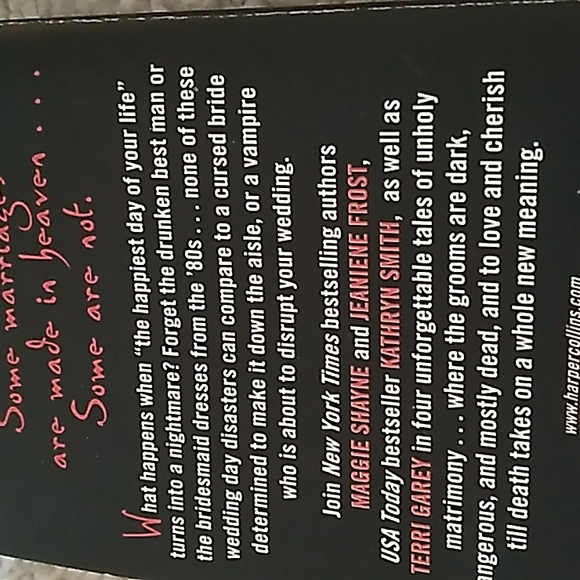 Some marriages
are made in heaven . . .
Some are not.
What happens when "the happiest day of your life"
turns into a nightmare? Forget the drunken best man or
the bridesmaid dresses from the '80s . . . none of these
wedding day disasters can compare to a cursed bride
determined to make it down the aisle, or a vampire
who is about to disrupt your wedding.
Join New York Times bestselling authors
MAGGIE SHAYNE and JEANIENE FROST,
USA Today bestseller KATHRYN SMITH, as well as
TERRI GAREY in four unforgettable tales of unholy
matrimony . . . where the grooms are dark,
angerous, and mostly dead, and to love and cherish
till death takes on a whole new meaning.
www.harpercollins.com